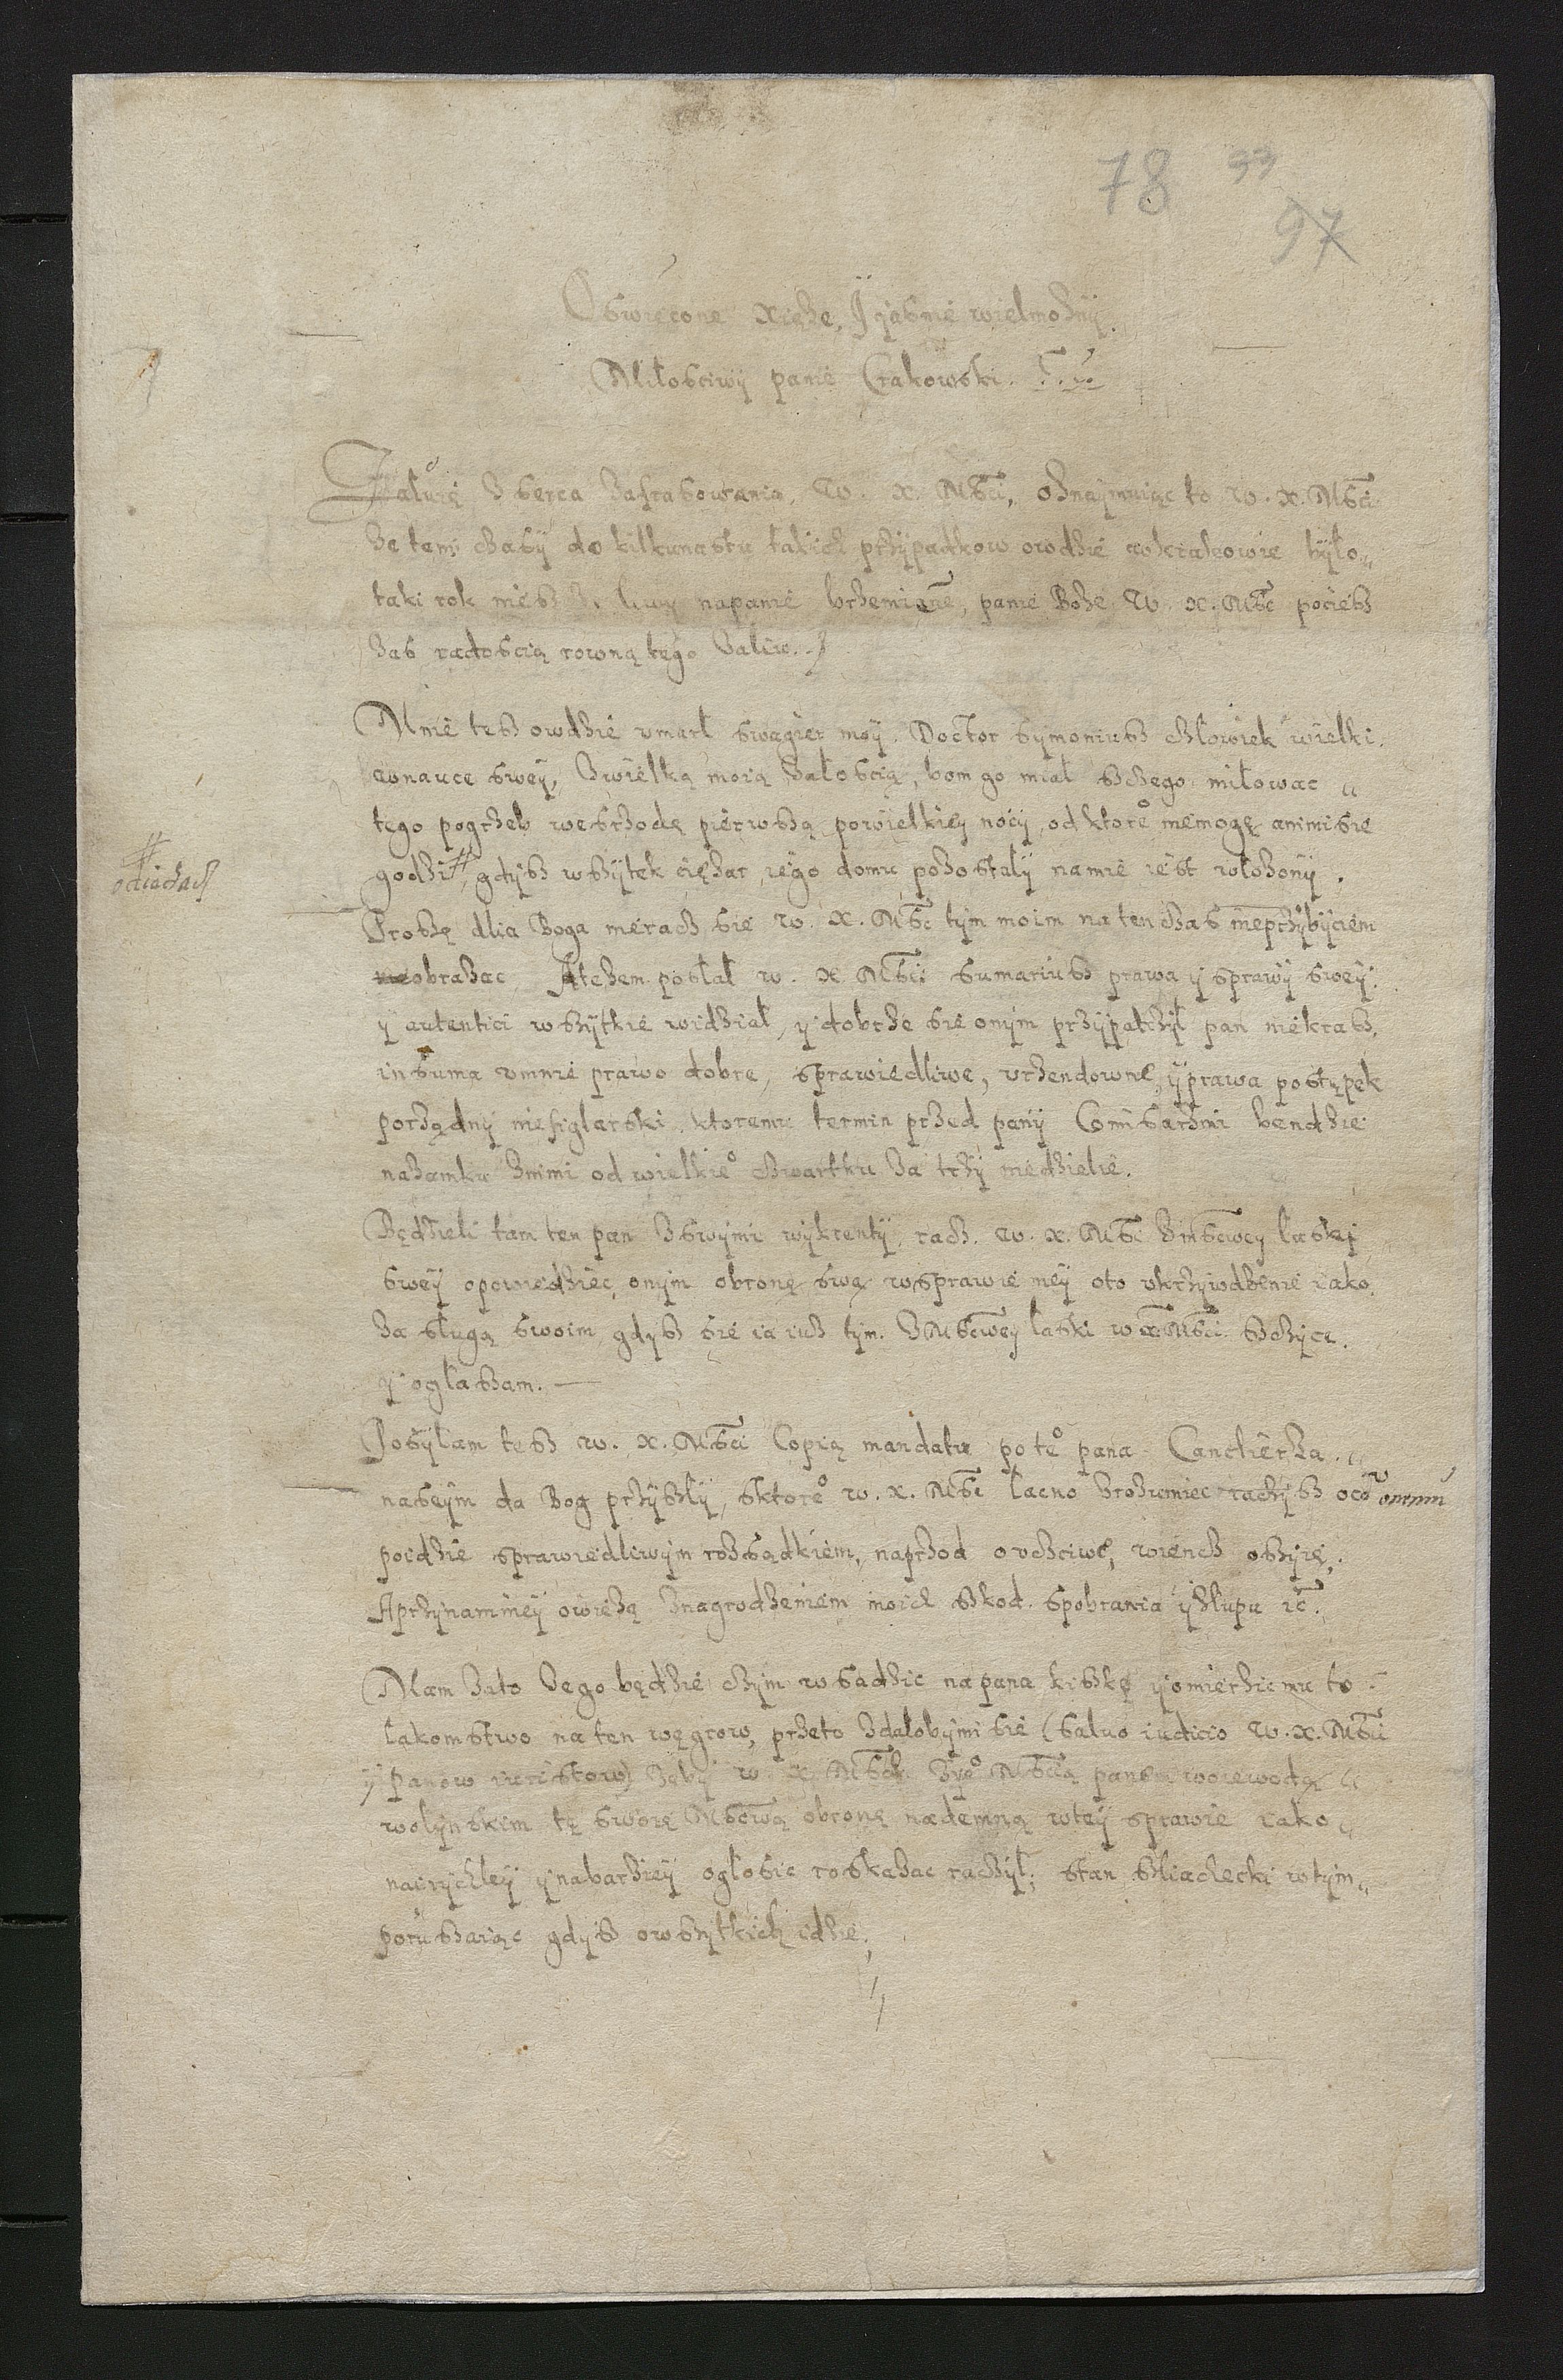 78 99
97
Oswięcone Xięże, Y jasnie wielmożny
Miłosciwy panie Crakowski.
Załuię z serca zafrasowania, W. X. Msci, oznaymuiąc to W. X. Msci
ze temi czasy do kilkunastu takich przypadkow owdzie było
taki rok na panie brzemienne, panie Boze W. X. Msc pociesz
zas radoscią rowną tego zaliu.
Mnie tesz owdzie vmarł swagier moy. Doctor Symoniusz człowiek wielki
w nauce swey, z wielką moią załoscią, bom go miał z czego miłowac
tego pogrzeb we srzodę pierwszą po wielkiey nocy, od ktore° niemogę ani mi sie
godzi # gdysz wszytek cięzar iego domu pozostały na mie iest włozony.
# odiachach
Proszę dlia Boga nieracz sie W. X. Msc tym moim na ten czas nieprzybyciem
obrazac Atezem posłał W. X. Msci sumariusz prawa y sprawy swey
y autentici wszytkie widział, y dobrze sie onym przypatrzył pan niekrasz,
in suma vmnie prawo dobre, sprawiedliwe, vrzendowne, y prawa postępek
porządny niefiglarski, ktoremu termin przed pany Comisarzmi bendzie
na zamku z nimi od wielkie° czwartku za trzy niedzielie.
Będzieli tam ten pan z swymi wykrenty, racz W. X. Msc z mscwey łaski
swey opowiedziec onym obronę swą w sprawie mey o to vkrzywdzenie iako
za sługą swoim, gdysz sie ia iusz tym z Mscwey łaski W X. Msci szczyce
y ogłaszam.
Posyłam tesz W. X. Msci Copią mandatu po te° pana Canclierza
na seym da Bog przyszły, s ktore° W. X. Msc łacno zrozumiec raczysz o co omnium
poidzie sprawiedliwym rozsądkiem, naprzod o vczciwe, wiencz o szyię,
A przynamniey o wiezą z nagrodzeniem moich szkod spobrania y złupu etc.
Mam za to ze go będzie czym wsadzic na pana kiszkę y omierzic mu to
łakomstwo na ten węgrow, przeto zdałoby mi sie (saluo iudicio W. X. Msci
y panow iuristow) zeby W. X. Msc z Je° Mscią panem woiewodą
wolynskim tę swoię Mscwą obronę nademną w tey sprawie iako
nairychley y nabarziey ogłosic roskazac raczył, stan szliachecki w tym
poruszaiąc gdysz o wszytkich idzie.